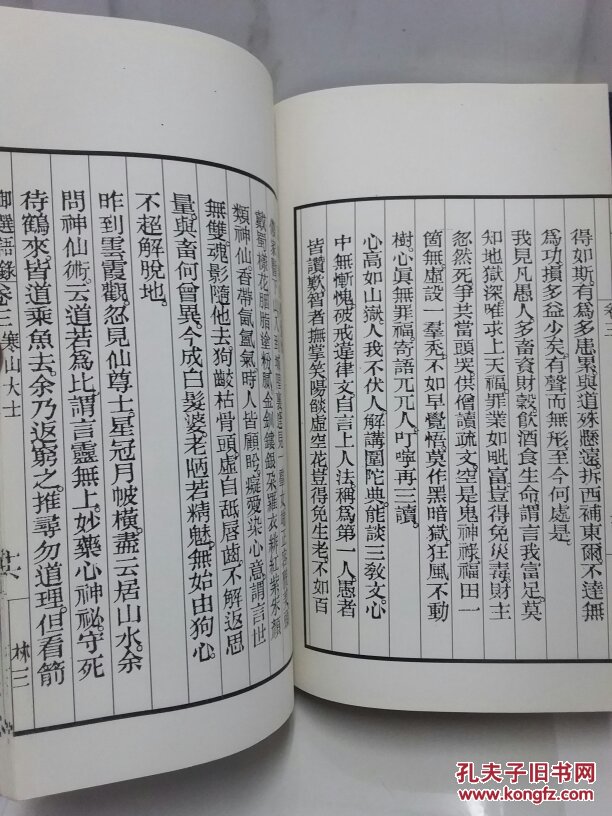 得如斯。有為多患累。與道殊懸遠。拆西補東爾。不達無
為功。損多益少矣。有聲而無形。至今何處是。
我見凡愚人。多畜資財穀。飲酒食生命。謂言我富足。莫
知地獄深。唯求上天福。罪業如毗富。豈得免災毒。財主
忽然死。爭共當頭哭。供僧讀疏文。空是鬼神祿。福田一
箇無。虛設一羣禿。不如早覺悟。莫作黑暗獄。狂風不動
樹。心眞無罪福。寄語兀兀人。叮嚀再三讀。
心高如山嶽。人我不伏人。解講圍陀典。能談三敎文。心
中無慚愧。破戒違律文。自言上人法。稱為第一人。愚者
皆讚歎。智者撫掌笑。陽燄虛空花。豈得免生老。不如百
類神仙。香帶氛氳氣。時人皆顧盻。癡愛染心意。謂言世
無雙。魂影隨他去。狗齩枯骨頭。虛自舐脣齒。不解返思
量。與畜何曾異。今成白髮婆。老陋若精魅。無始由狗心。
不超解脫地。
昨到雲霞觀。忽見仙尊士。星冠月帔橫。盡云居山水。余
問神仙術。云道若為比。謂言靈無上。妙藥心神祕。守死
待鶴來。皆道乘魚去。余乃返窮之。推尋勿道理。但看箭
御選語錄卷三寒山大士
孔夫子旧书网
kongfz.com